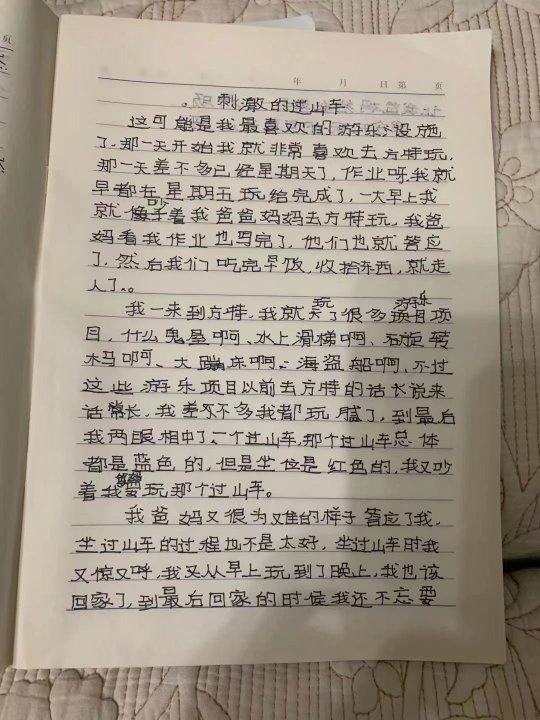 年 月 日 第 页
页
。刺激的过山车
这可能是我最喜欢的游乐设施
了,那一天开始我就非常喜欢去方特玩,
那一天差不多已经星期天了,作业呀我就
早都在星期五玩给完成了,一大早上我
就像吵着我爸爸妈妈去方特玩,我爸
妈看我作业也写完了,他们也就答应
了,然后我们吃完早饭,收拾东西,就走
人了。。
我一来到方特,我就玩了很多游乐项
目,什么鬼屋啊、水上滑梯啊、旋转
木马啊、大蹦床啊、海盗船啊,不过
这些游乐项目以前去方特的话长说来
话常长,我差不多我都玩腻了,到最后
我两眼相中了一个过山车,那个过山车总体
都是蓝色的,但是坐位是红色的,我又吵
着我爸妈要玩那个过山车。
我爸妈又很为难的样子答应了我,
坐过山车的过程也不是太好,坐过山车时我
又惊又呼,我又从早上玩到了晚上,我也该
回家了,到最后回家的时候我还不忘要